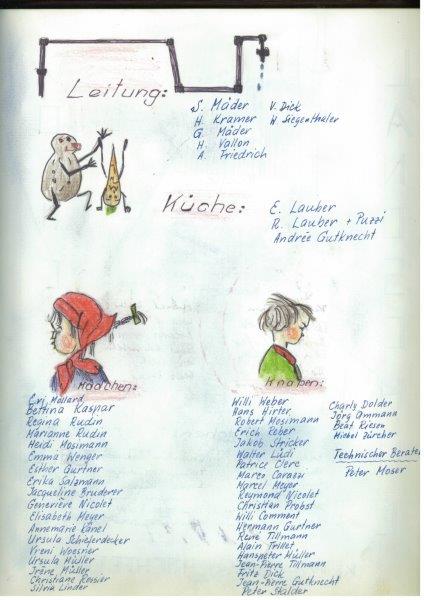 Leitung:
S. Mäder
H. Kramer
G. Mäder
H. Vallon
A. Friedrich
V. Dick
H. Siegenthaler
Küche:
E. Lauber
R. Lauber + Puzzi
Andrée Gutknecht
Mädchen:
Evi Mollard
Bettina Kaspar
Regina Rudin
Marianne Rudin
Heidi Mosimann
Emma Wenger
Esther Gurtner
Erika Salzmann
Jacqueline Bruderer
Geneviève Nicolet
Elisabeth Meyer
Annemarie Känel
Ursula Schieferdecker
Vreni Woesner
Ursula Müller
Irène Müller
Christiane Rossier
Silvia Linder
Knaben:
Willi Weber
Hans Hirter
Robert Mosimann
Erich Reber
Jakob Stricker
Walter Lüdi
Patrice Clerc
Marco Carazzi
Marcel Meyer
Reymond Nicolet
Christian Probst
Willi Comment
Hermann Gurtner
René Tillmann
Alain Trillet
Hanspeter Müller
Jean-Pierre Tillmann
Fritz Dick
Jean-Pierre Gutknecht
Peter Skalder
Charly Dolder
Jörg Ammann
Beat Riesen
Michel Zürcher
Technischer Berater
Peter Moser